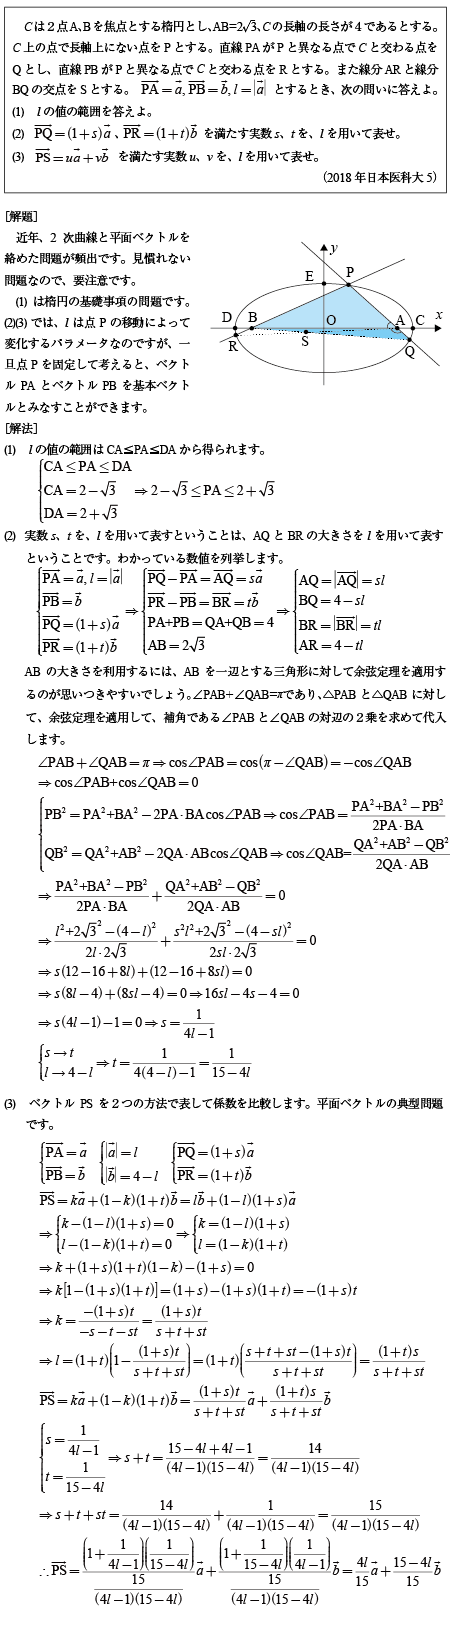 Cは2点A、Bを焦点とする楕円とし、AB=2√3、Cの長軸の長さが4であるとする。
C上の点で長軸上にない点をPとする。直線PAがPと異なる点でCと交わる点を
Qとし、直線PBがPと異なる点でCと交わる点をRとする。また線分ARと線分
BQの交点をSとする。 PA→=a→, PB→=b→, l=|a→| とするとき、次の問いに答えよ。
(1) lの値の範囲を答えよ。
(2) PQ→=(1+s)a→、PR→=(1+t)b→ を満たす実数s、tを、lを用いて表せ。
(3) PS→=ua→+vb→ を満たす実数u、vを、lを用いて表せ。
(2018年日本医科大5)
[解題]
近年、2次曲線と平面ベクトルを
絡めた問題が頻出です。見慣れない
問題なので、要注意です。
(1) は楕円の基礎事項の問題です。
(2)(3)では、lは点Pの移動によって
変化するパラメータなのですが、一
旦点Pを固定して考えると、ベクト
ルPAとベクトルPBを基本ベクト
ルとみなすことができます。
y
E P
D B O A C x
R S Q
[解法]
(1) lの値の範囲はCA≦PA≦DAから得られます。
{CA≤PA≤DA
CA=2-√3 ⇒2-√3≤PA≤2+√3
DA=2+√3
(2) 実数s、tを、lを用いて表すということは、AQとBRの大きさをlを用いて表す
ということです。わかっている数値を列挙します。
{PA→=a→, l=|a→| {PQ→-PA→=AQ→=sa→ {AQ=|AQ→|=sl
PB→=b→ ⇒ PR→-PB→=BR→=tb→ ⇒ BQ=4-sl
PQ→=(1+s)a→ PA+PB=QA+QB=4 BR=|BR→|=tl
PR→=(1+t)b→ AB=2√3 AR=4-tl
ABの大きさを利用するには、ABを一辺とする三角形に対して余弦定理を適用す
るのが思いつきやすいでしょう。∠PAB+∠QAB=πであり、△PABと△QABに対し
て、余弦定理を適用して、補角である∠PABと∠QABの対辺の2乗を求めて代入
します。
∠PAB+∠QAB=π⇒cos∠PAB=cos(π-∠QAB)=-cos∠QAB
⇒cos∠PAB+cos∠QAB=0
{PB²=PA²+BA²-2PA·BAcos∠PAB⇒cos∠PAB=(PA²+BA²-PB²)/(2PA·BA)
QB²=QA²+AB²-2QA·ABcos∠QAB⇒cos∠QAB=(QA²+AB²-QB²)/(2QA·AB)
⇒(PA²+BA²-PB²)/(2PA·BA)+(QA²+AB²-QB²)/(2QA·AB)=0
⇒(l²+2√3²-(4-l)²)/(2l·2√3)+(s²l²+2√3²-(4-sl)²)/(2sl·2√3)=0
⇒s(12-16+8l)+(12-16+8sl)=0
⇒s(8l-4)+(8sl-4)=0⇒16sl-4s-4=0
⇒s(4l-1)-1=0⇒s=1/(4l-1)
{s→t
l→4-l ⇒t=1/(4(4-l)-1)=1/(15-4l)
(3) ベクトルPSを2つの方法で表して係数を比較します。平面ベクトルの典型問題
です。
{PA→=a→ {|a→|=l {PQ→=(1+s)a→
PB→=b→ |b→|=4-l PR→=(1+t)b→
PS→=ka→+(1-k)(1+t)b→=lb→+(1-l)(1+s)a→
⇒{k-(1-l)(1+s)=0 ⇒{k=(1-l)(1+s)
l-(1-k)(1+t)=0 l=(1-k)(1+t)
⇒k+(1+s)(1+t)(1-k)-(1+s)=0
⇒k[1-(1+s)(1+t)]=(1+s)-(1+s)(1+t)=-(1+s)t
⇒k=-(1+s)t/(-s-t-st)=(1+s)t/(s+t+st)
⇒l=(1+t)(1-(1+s)t/(s+t+st))=(1+t)((s+t+st-(1+s)t)/(s+t+st))=(1+t)s/(s+t+st)
PS→=ka→+(1-k)(1+t)b→=(1+s)t/(s+t+st)a→+(1+t)s/(s+t+st)b→
{s=1/(4l-1)
t=1/(15-4l) ⇒s+t=(15-4l+4l-1)/((4l-1)(15-4l))=14/((4l-1)(15-4l))
⇒s+t+st=14/((4l-1)(15-4l))+1/((4l-1)(15-4l))=15/((4l-1)(15-4l))
∴PS→=((1+1/(4l-1))(1/(15-4l)))/(15/((4l-1)(15-4l)))a→+((1+1/(15-4l))(1/(4l-1)))/(15/((4l-1)(15-4l)))b→=4l/15a→+(15-4l)/15b→